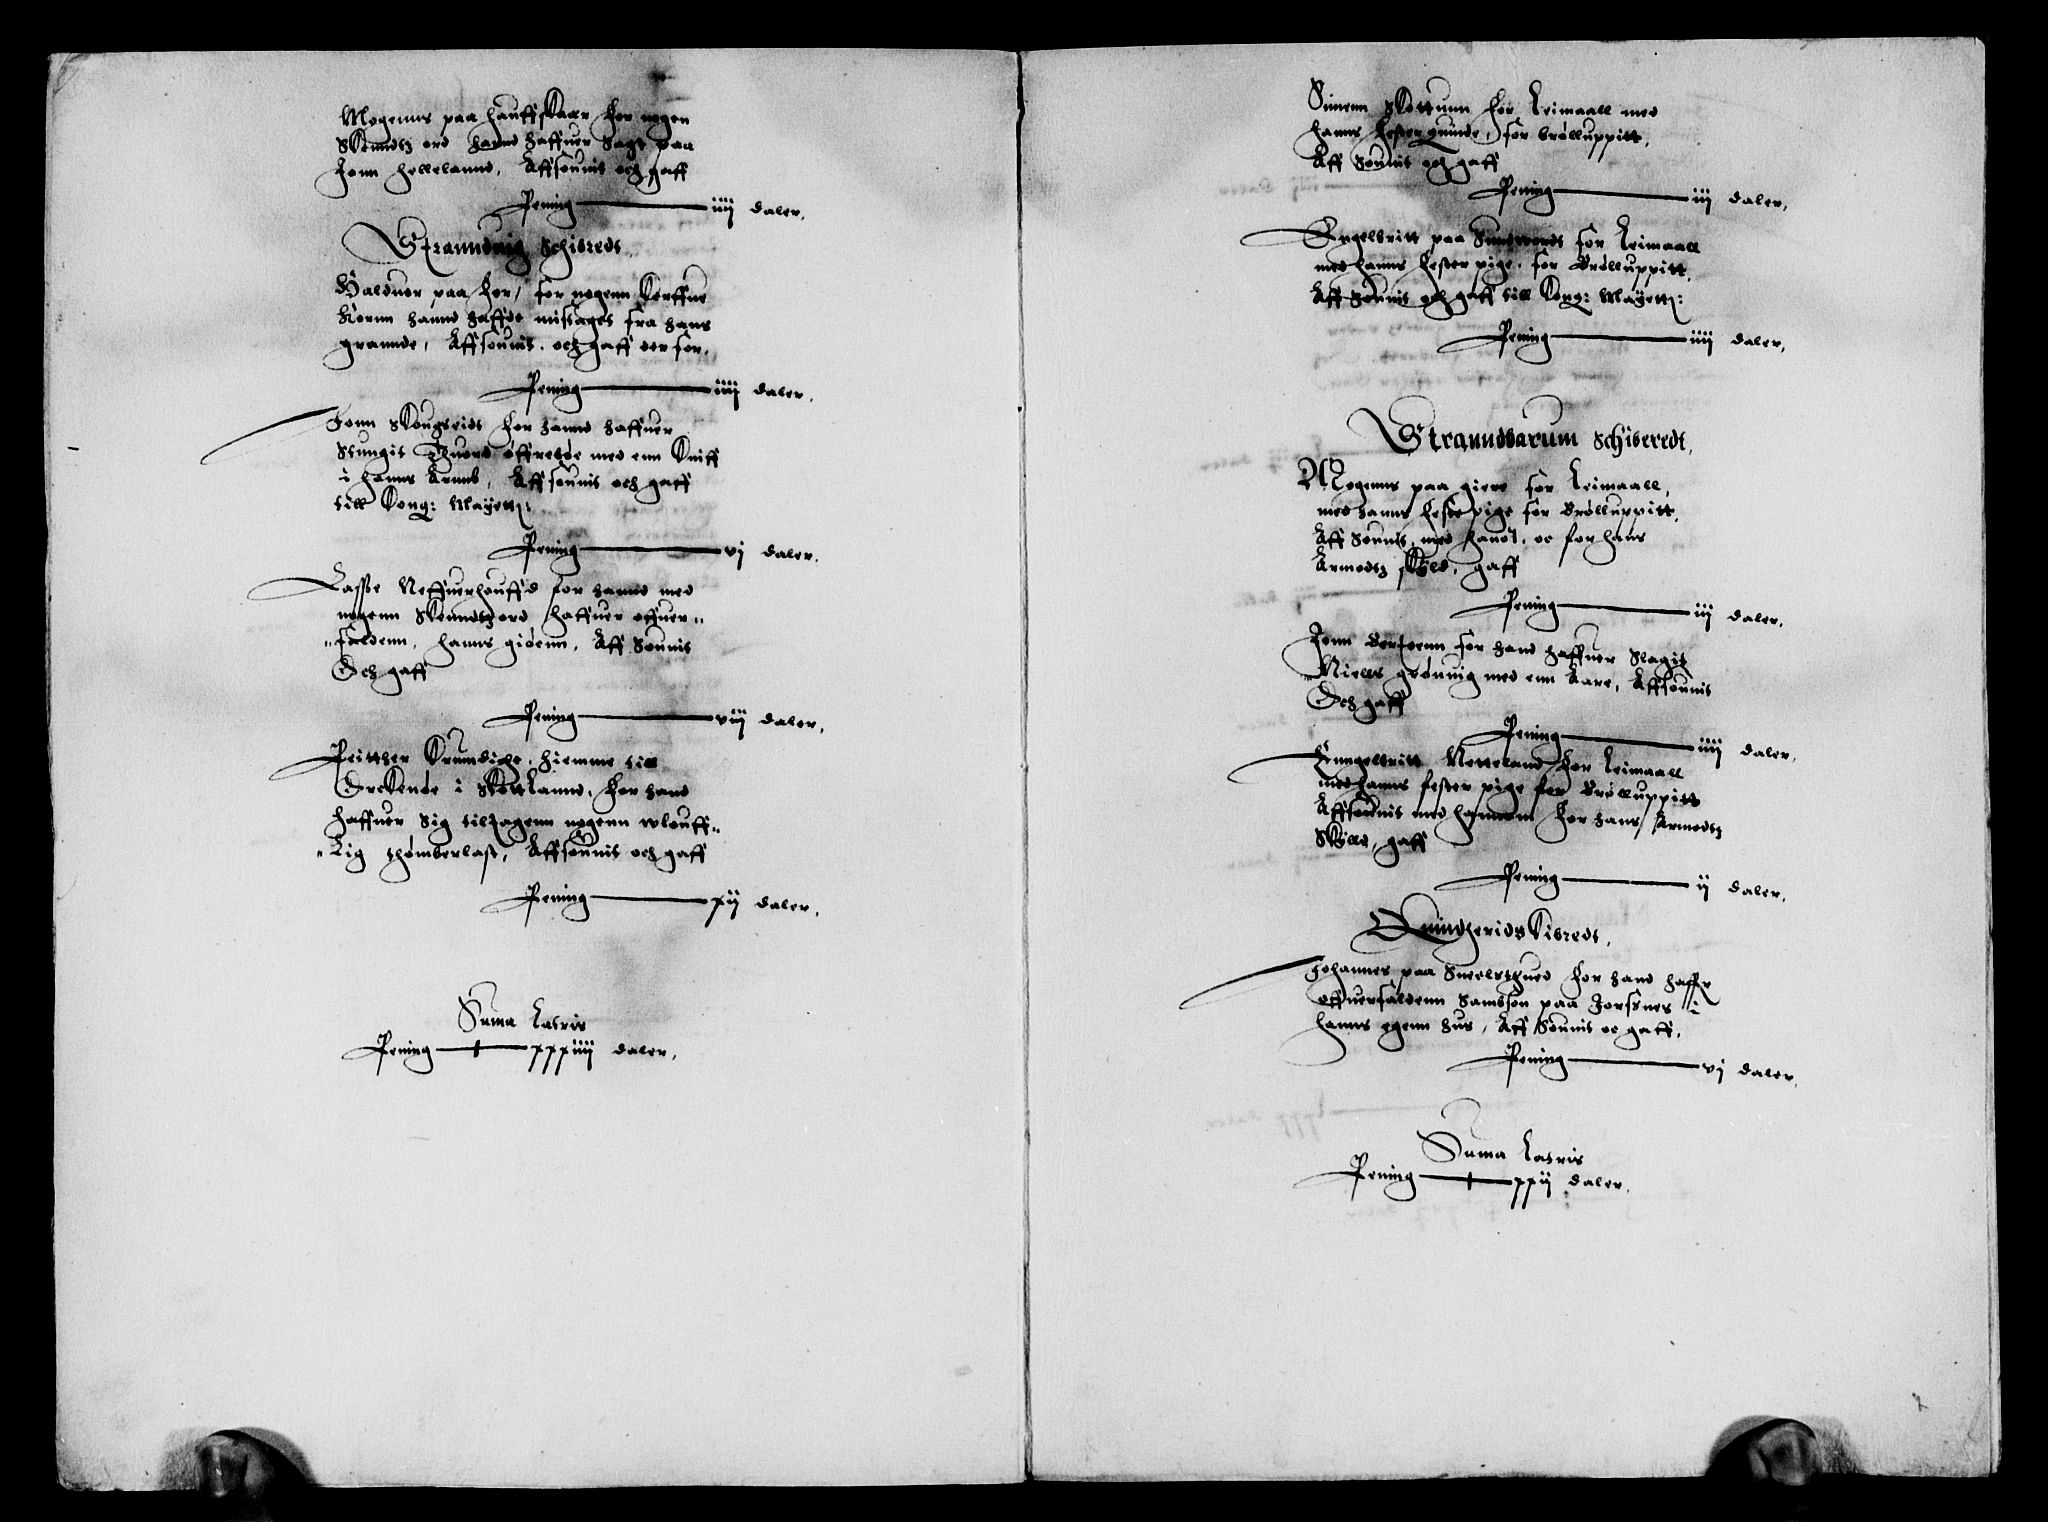 Mogenns paa hauffskaar for nogen
Skenndtz ord hannd haffuer Sagt paa
Jonn hellelannd, Affsonnit och gaff
Pening iiij daler,
Stranndvig Schibredt,
Haluor paa for, for nogenn
Kornn hannd haffde mistaget fra hans
grannde, Affsonnit, och gaff der for,
Pening iiij daler,
Jonn Skougseidt for hannd haffuer
Stungit med enn Kniff
i hanns Armb, Affsonnit och gaff
till Kong: Mayettz:
Pening vj daler,
Lasse Neffuerhouffd for hannd med
nogenn Skenndtzord haffuer offuer„
„faldenn, hanns giøenn, Aff Sonnit
Och gaff
Pening viij daler,
Peitther hiemme till
i Skottlannd, for hand
haffuer Sig tiltagenn nogenn vlouff„
„Lig thømberlast, Affsonnit och gaff
Pening xij daler,
Suma Latris
Pening xxxiiij daler,
Simenn Skottunn for Leimaall med
hanns fester quinde, for brølluppitt,
Aff Sonnit och gaff
Pening iij daler,
Engelbritt paa Sundvordt for Leimaall
med hanns fester pige, for Brølluppitt,
Aff Sonnit och gaff till Kong: Mayettz:
Pening iiij daler,
Stranndbarum Schiberedt,
Mogenns paa giere for Leimaall,
med hanns feste pige for Brølluppitt,
Aff Sonnit, med hanom, oc for hans
Armodtz skyld, gaff
Pening iij daler,
Jonn for hand haffuer Slagit
Niells grønnig med enn Aare, Affsonnit
Och gaff
Pening iiij daler,
Enngelbritt Netteland for Leimaall
med hanns fester pige for Brølluppitt
Affsonnit med hannom for hans Armodtz
Skylld, gaff
Pening ij daler,
Quindherids Kibredt,
Johannes paa for hand haffr
offuerfaldenn Sambson paa i
hanns egenn hus, Aff Sonnit oc gaff,
Pening vj daler,
Suma Latris
Pening xxij daler,